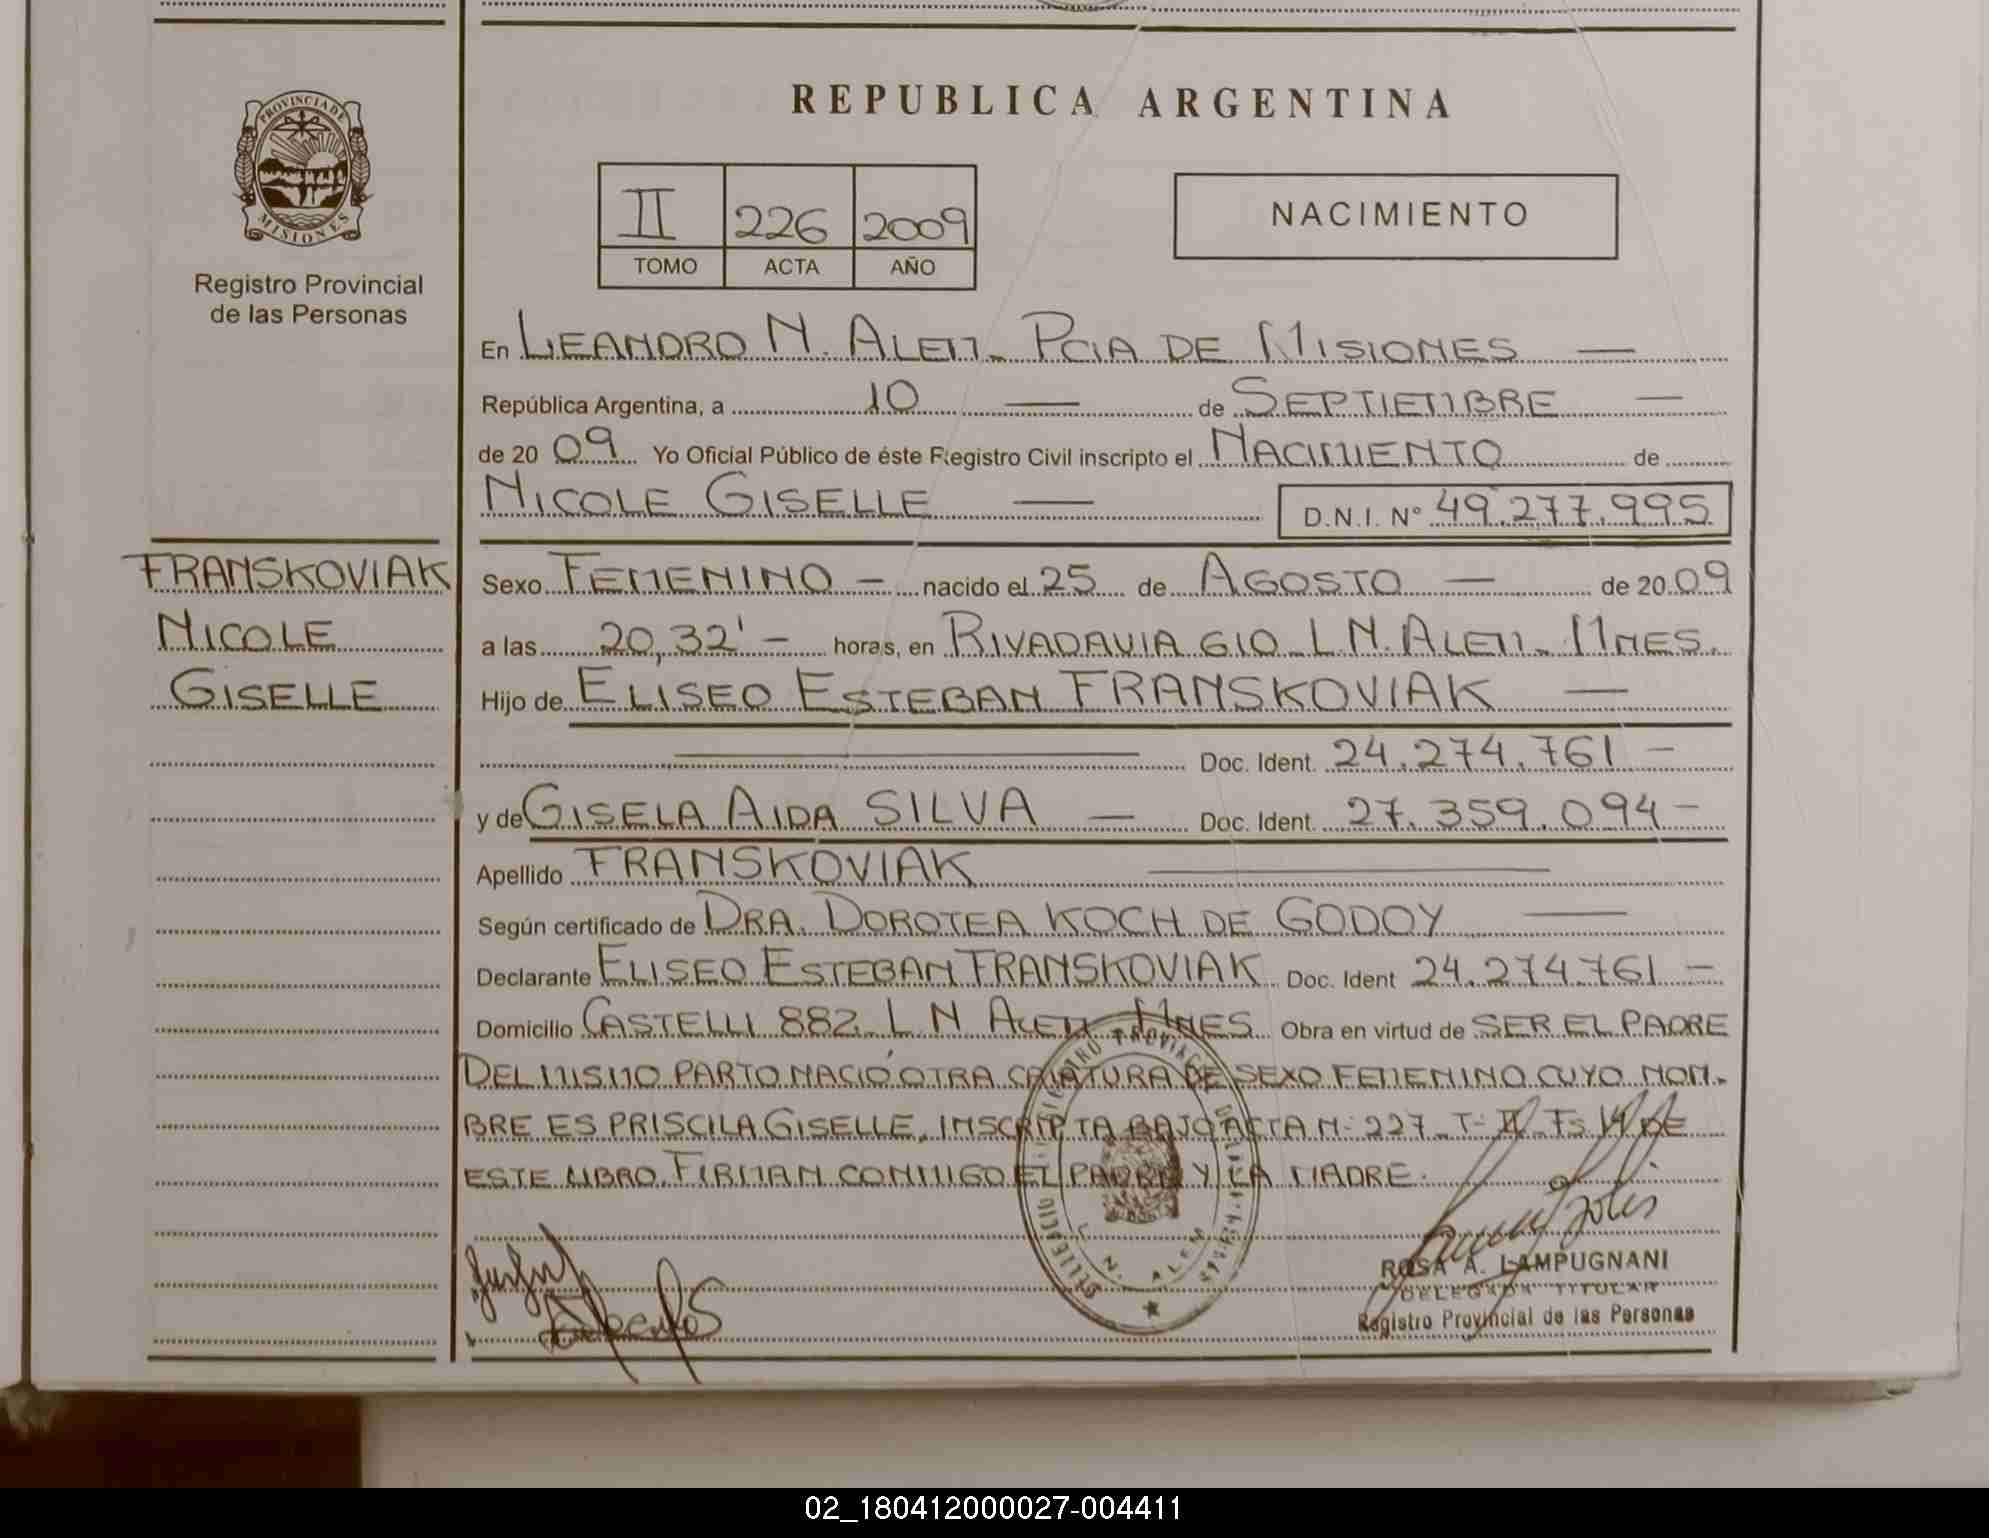 PROVINCIA DE
MISIONES
Registro Provincial
de las Personas
REPUBLICA ARGENTINA
II 226 2009
TOMO ACTA AÑO
NACIMIENTO
En LEANDRO N. ALEM - PCIA DE MISIONES —
República Argentina, a 10 — de SEPTIEMBRE —
de 2009 Yo Oficial Público de éste Registro Civil inscripto el NACIMIENTO de
NICOLE GISELLE — D.N.I. N° 49.277.995
FRANSKOVIAK
NICOLE
GISELLE
Sexo FEMENINO - nacido el 25 de AGOSTO — de 2009
a las 20,32' - horas, en RIVADAVIA 610 - L N. ALEM - MNES.
Hijo de ELISEO ESTEBAN FRANSKOVIAK —
Doc. Ident. 24.274.761 -
y de GISELA AIDA SILVA — Doc. Ident. 27.359.094 -
Apellido FRANSKOVIAK
Según certificado de DRA. DOROTEA KOCH DE GODOY —
Declarante ELISEO ESTEBAN FRANSKOVIAK Doc. Ident 24.274.761 -
Domicilio CASTELLI 882 - L N ALEM - MNES Obra en virtud de SER EL PADRE
DEL MISMO PARTO NACIÓ OTRA CRIATURA DE SEXO FEMENINO CUYO NOM-
BRE ES PRISCILA GISELLE, INSCRIPTA BAJO ACTA N: 227 - T: II - Fs 14 DE
ESTE LIBRO. FIRMAN CONMIGO EL PADRE Y LA MADRE.
L. N. ALEM
ROSA A. LAMPUGNANI
DELEGADA TITULAR
Registro Provincial de las Personas
02_180412000027-004411